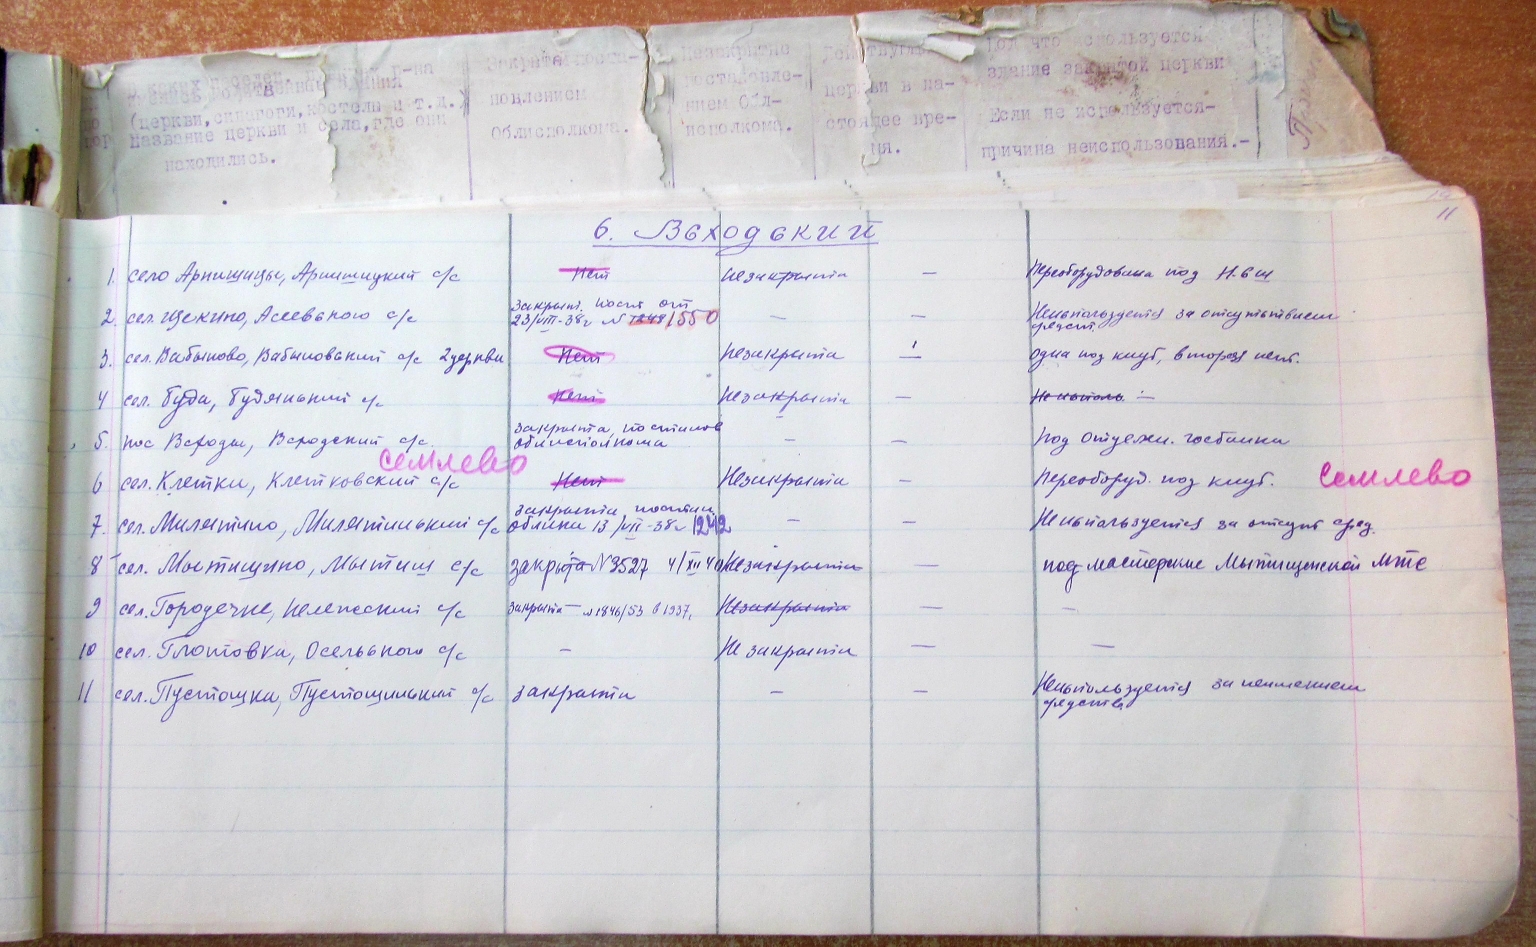 В каких населен. пунктах р-на
имелись молитвенные здания
(церкви, синагоги, костелы и т.д.)
Название церкви и села, где они
находились.
Закрыта поста-
новлением
Облисполкома.
Незакрытие
постановле-
нием Обл-
исполкома.
Действующие
церкви в на-
стоящее вре-
мя.
Под что используется
здание закрытой церкви
Если не используется-
причина неиспользования.-
11
6. Всходский
1. село Арнишицы, Арнишицкий с/с Нет Незакрыта — Переоборудована под Н.с.ш
2. сел. Щекино, Асеевского с/с Закрыт. пост от 23/VIII-38г № 1248/550 — — Неиспользуется за отсутствием средст.
3. сел. Бабыново, Бабыновский с/с 2 церкви Нет Незакрыта 1 одна под клуб, вторая нет.
4 сел. Буда, Будянский с/с Нет Незакрыта — Не использ. —
5. пос Всходы, Всходский с/с. закрыта постанов облисполкома — — под отделен. госбанка
семлево
6 сел. Клетки, Клетковский с/с Нет Незакрыта — Переоборуд. под клуб. Семлево
7. сел. Милятино, Милятинский с/с закрыта постан. облика 13/VII-38г 1242 — — Неиспользуется за отсут сред.
8 сел. Мытищино, Мытищ с/с закрыта №3527 4/XII 40 Незакрыта — под мастерские Мытищенской мтс
9 сел. Городечне, с/с закрыта — №1846/53 в 1937. Незакрыта — —
10 сел. Глотовка, Осельского с/с — Не закрыта — —
11 сел. Пустошка, Пустошинский с/с закрыта — — Неиспользуется за неимением средств